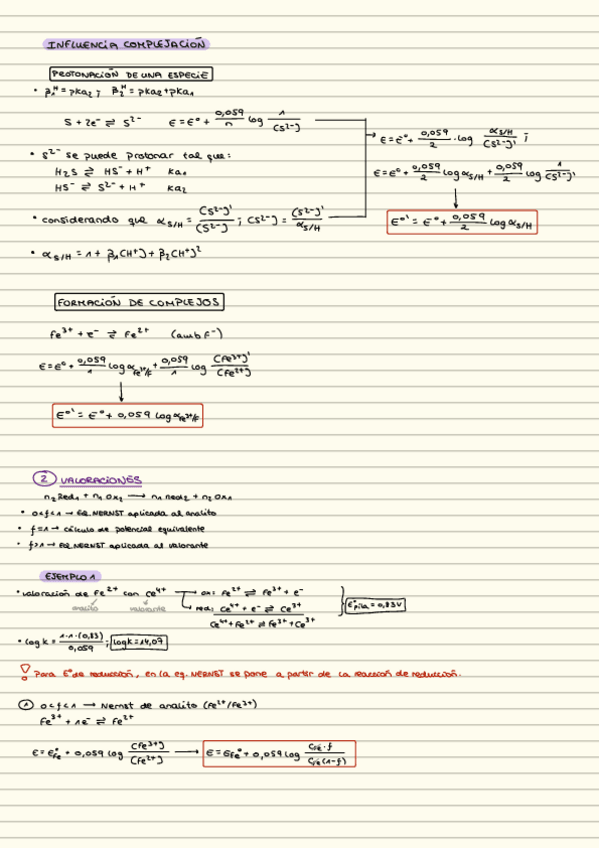 INFLUENCIA COMPLEJACIÓN
PROTONACIÓN DE UNA ESPECIE
• β₁ᴴ = pka₂ ; β₂ᴴ = pka₂ + pka₁
S + 2e⁻ ⇌ S²⁻ E = E° + 0,059/n log 1/[S²⁻]
E = E° + 0,059/2 · log αS/H/[S²⁻]' ;
• S²⁻ se puede protonar tal que:
H₂S ⇌ HS⁻ + H⁺ ka₁
E = E° + 0,059/2 log αS/H + 0,059/2 log 1/[S²⁻]'
HS⁻ ⇌ S²⁻ + H⁺ ka₂
• considerando que αS/H = [S²⁻]'/[S²⁻] ; [S²⁻] = [S²⁻]'/αS/H
E°' = E° + 0,059/2 log αS/H
• αS/H = 1 + β₁[H⁺] + β₂[H⁺]²
FORMACIÓN DE COMPLEJOS
Fe³⁺ + e⁻ ⇌ Fe²⁺ (amb F⁻)
E = E° + 0,059/1 log αFe³⁺/F + 0,059/1 log [Fe³⁺]'/[Fe²⁺]
E°' = E° + 0,059 log αFe³⁺/F
② VALORACIONES
n₂Red₁ + n₁Ox₂ → n₁Red₂ + n₂Ox₁
• 0<f<1 → EQ. NERNST aplicada al analito
• f=1 → cálculo de potencial equivalente
• f>1 → EQ. NERNST aplicada al valorante
EJEMPLO 1
• valoración de Fe²⁺ con Ce⁴⁺ → ox: Fe²⁺ ⇌ Fe³⁺ + e⁻
analito valorante
red: Ce⁴⁺ + e⁻ ⇌ Ce³⁺
E°pila = 0,83V
Ce⁴⁺ + Fe²⁺ ⇌ Fe³⁺ + Ce³⁺
• log k = 1·1·(0,83)/0,059 ; log k = 14,07
! Para E° de reducción, en la eq. NERNST se pone a partir de la reacción de reducción.
① 0<f<1 → Nernst de analito (Fe²⁺/Fe³⁺)
Fe³⁺ + 1e⁻ ⇌ Fe²⁺
E = E°Fe + 0,059 log [Fe³⁺]/[Fe²⁺] → E = E°Fe + 0,059 log CFe · f/CFe(1-f)